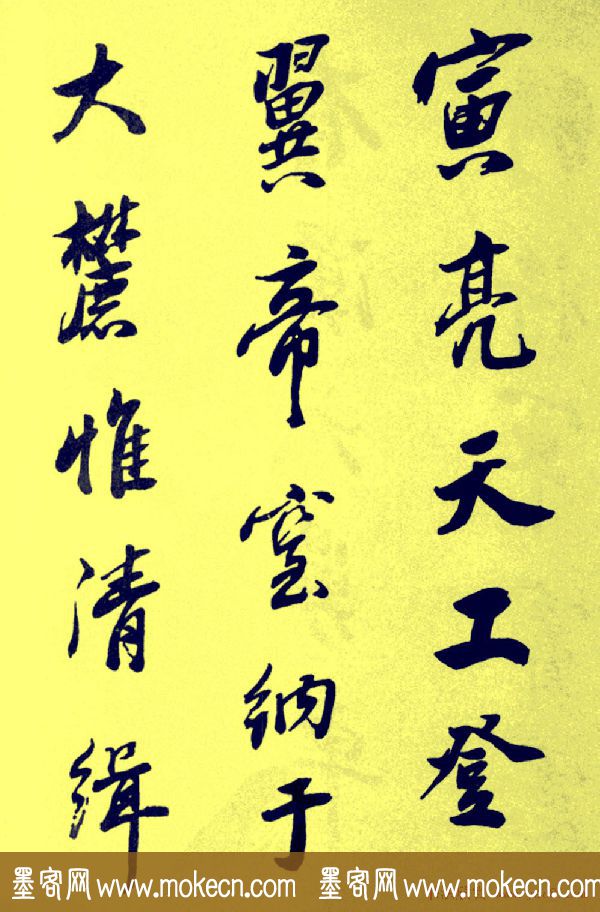 寅亮天工登
翼帝室納于
大麓惟清緝
墨客网 www.mokecn.com 墨客网 www.mokecn.com